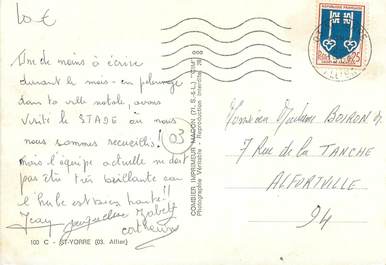 10 €
Une de moins à écrire
durant le mois - en pelerinage
dans ta ville natale, avons
visité le STADE où nous
nous sommes recueillis!
03
mais l'équipe actuelle ne doit
pas être très brillante car
l'herbe est bien haute!!
Jean Jacqueline
Catherine
100 C - ST-YORRE (03. Allier)
COMBIER IMPRIMEUR MACON (71, S.-&-L.) "CIM"
Photographie Véritable - Reproduction interdite
REPUBLIQUE FRANÇAISE
0,25
ALLIER
Monsieur Madame BOIRON
7 Rue de la TANCHE
ALFORTVILLE
94